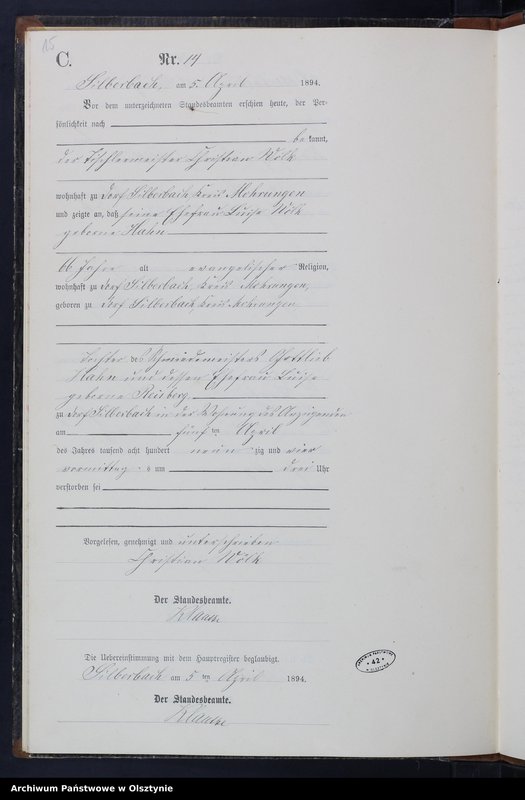 15
C.
Nr. 14
Silberbach, am 5. April 1894.
Vor dem unterzeichneten Standesbeamten erschien heute, der Per-
sönlichkeit nach
bekannt,
der Tischlermeister Christian Wölk
wohnhaft zu Dorf Silberbach Kreis Mohrungen
und zeigte an, daß seine Ehefrau Luise Wölk
geborne Hahn
66 Jahre alt evangelischer Religion,
wohnhaft zu Dorf Silberbach, Kreis Mohrungen,
geboren zu Dorf Silberbach, Kreis Mohrungen
Tochter des Schmiedemeisters Gottlieb
Hahn und dessen Ehefrau Luise
geborne
zu Dorf Silberbach in der Wohnung des Anzeigenden
am fünften April
des Jahres tausend acht hundert neunzig und vier
vormittags um drei Uhr
verstorben sei
Vorgelesen, genehmigt und unterschrieben
Christian Wölk
Der Standesbeamte.
Die Uebereinstimmung mit dem Hauptregister beglaubigt.
Silberbach am 5ten April 1894.
Der Standesbeamte.
42
Archiwum Państwowe w Olsztynie